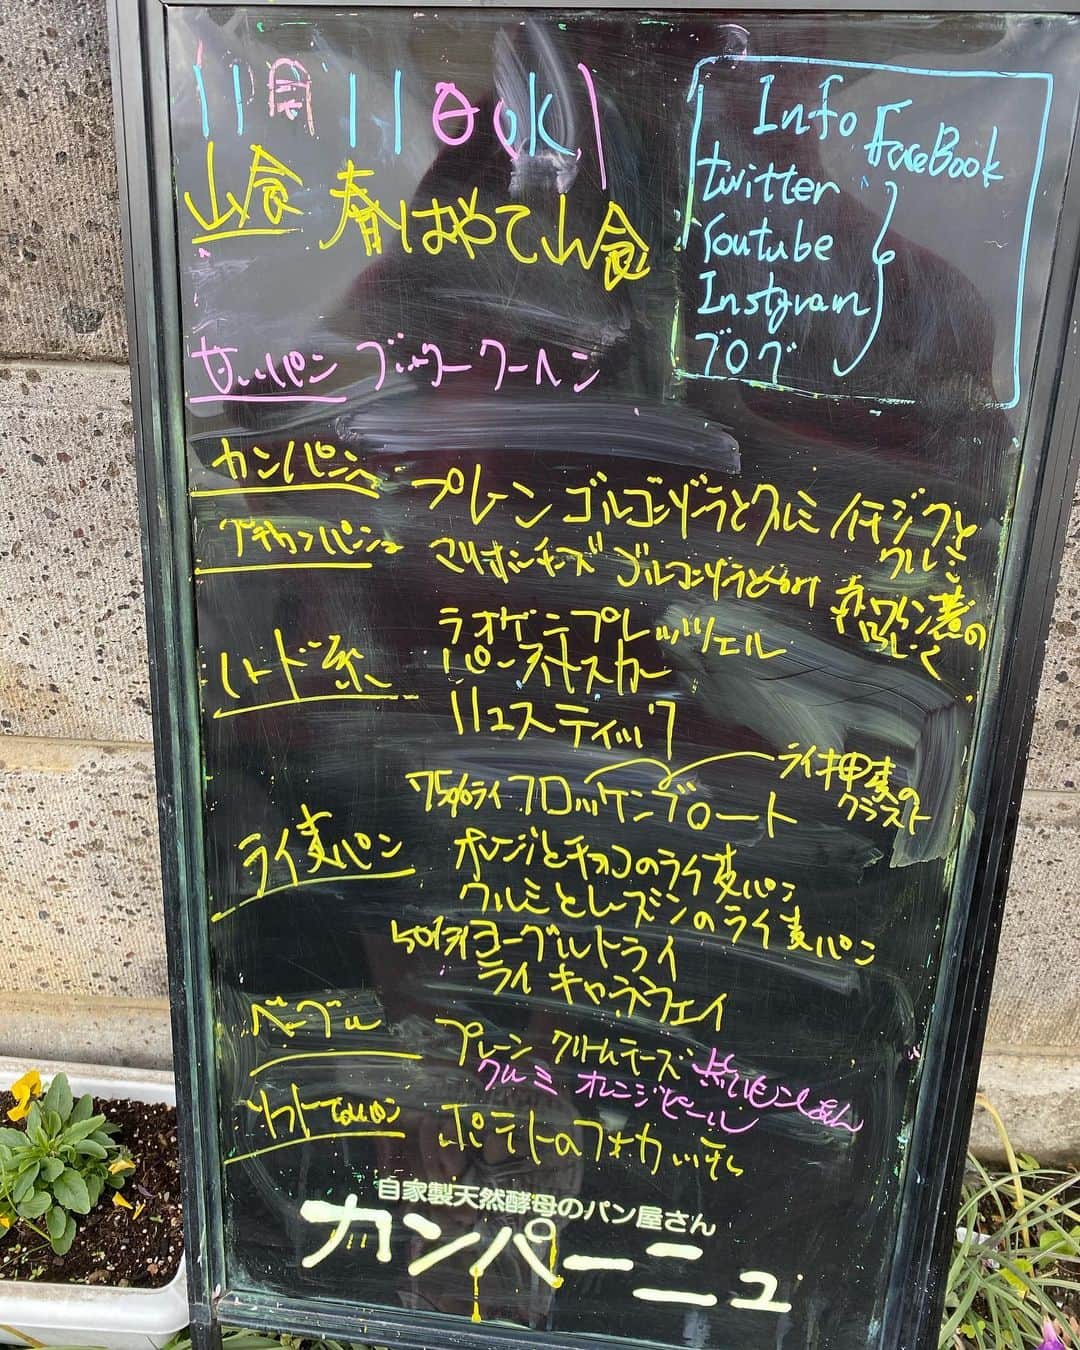 11月11日 OK
山食 春はやて山食
Info
FaceBook
twitter
Youtube
Instgram
ブログ
甘いパン ブッタークーヘン
カンパーニュ プレーン ゴルゴンゾーラとクルミ イチジクと
クルミ
プチカンパーニュ マリボーチーズ ゴルゴンゾーラとくるみ 赤ワイン煮の
いちじく
ハード系 ラオゲンプレッツェル
リュスティック
75%ライ フロッケンブロート ライ押麦の
クラスト
ライ麦パン オレンジとチョコのライ麦パン
クルミとレーズンのライ麦パン
50%ライヨーグルトライ
ライ キャラウェイ
ベーグル プレーン クリームチーズ
クルミ オレンジピール
ソフト ポテトのフォカッチャ
自家製天然酵母のパン屋さん
カンパーニュ